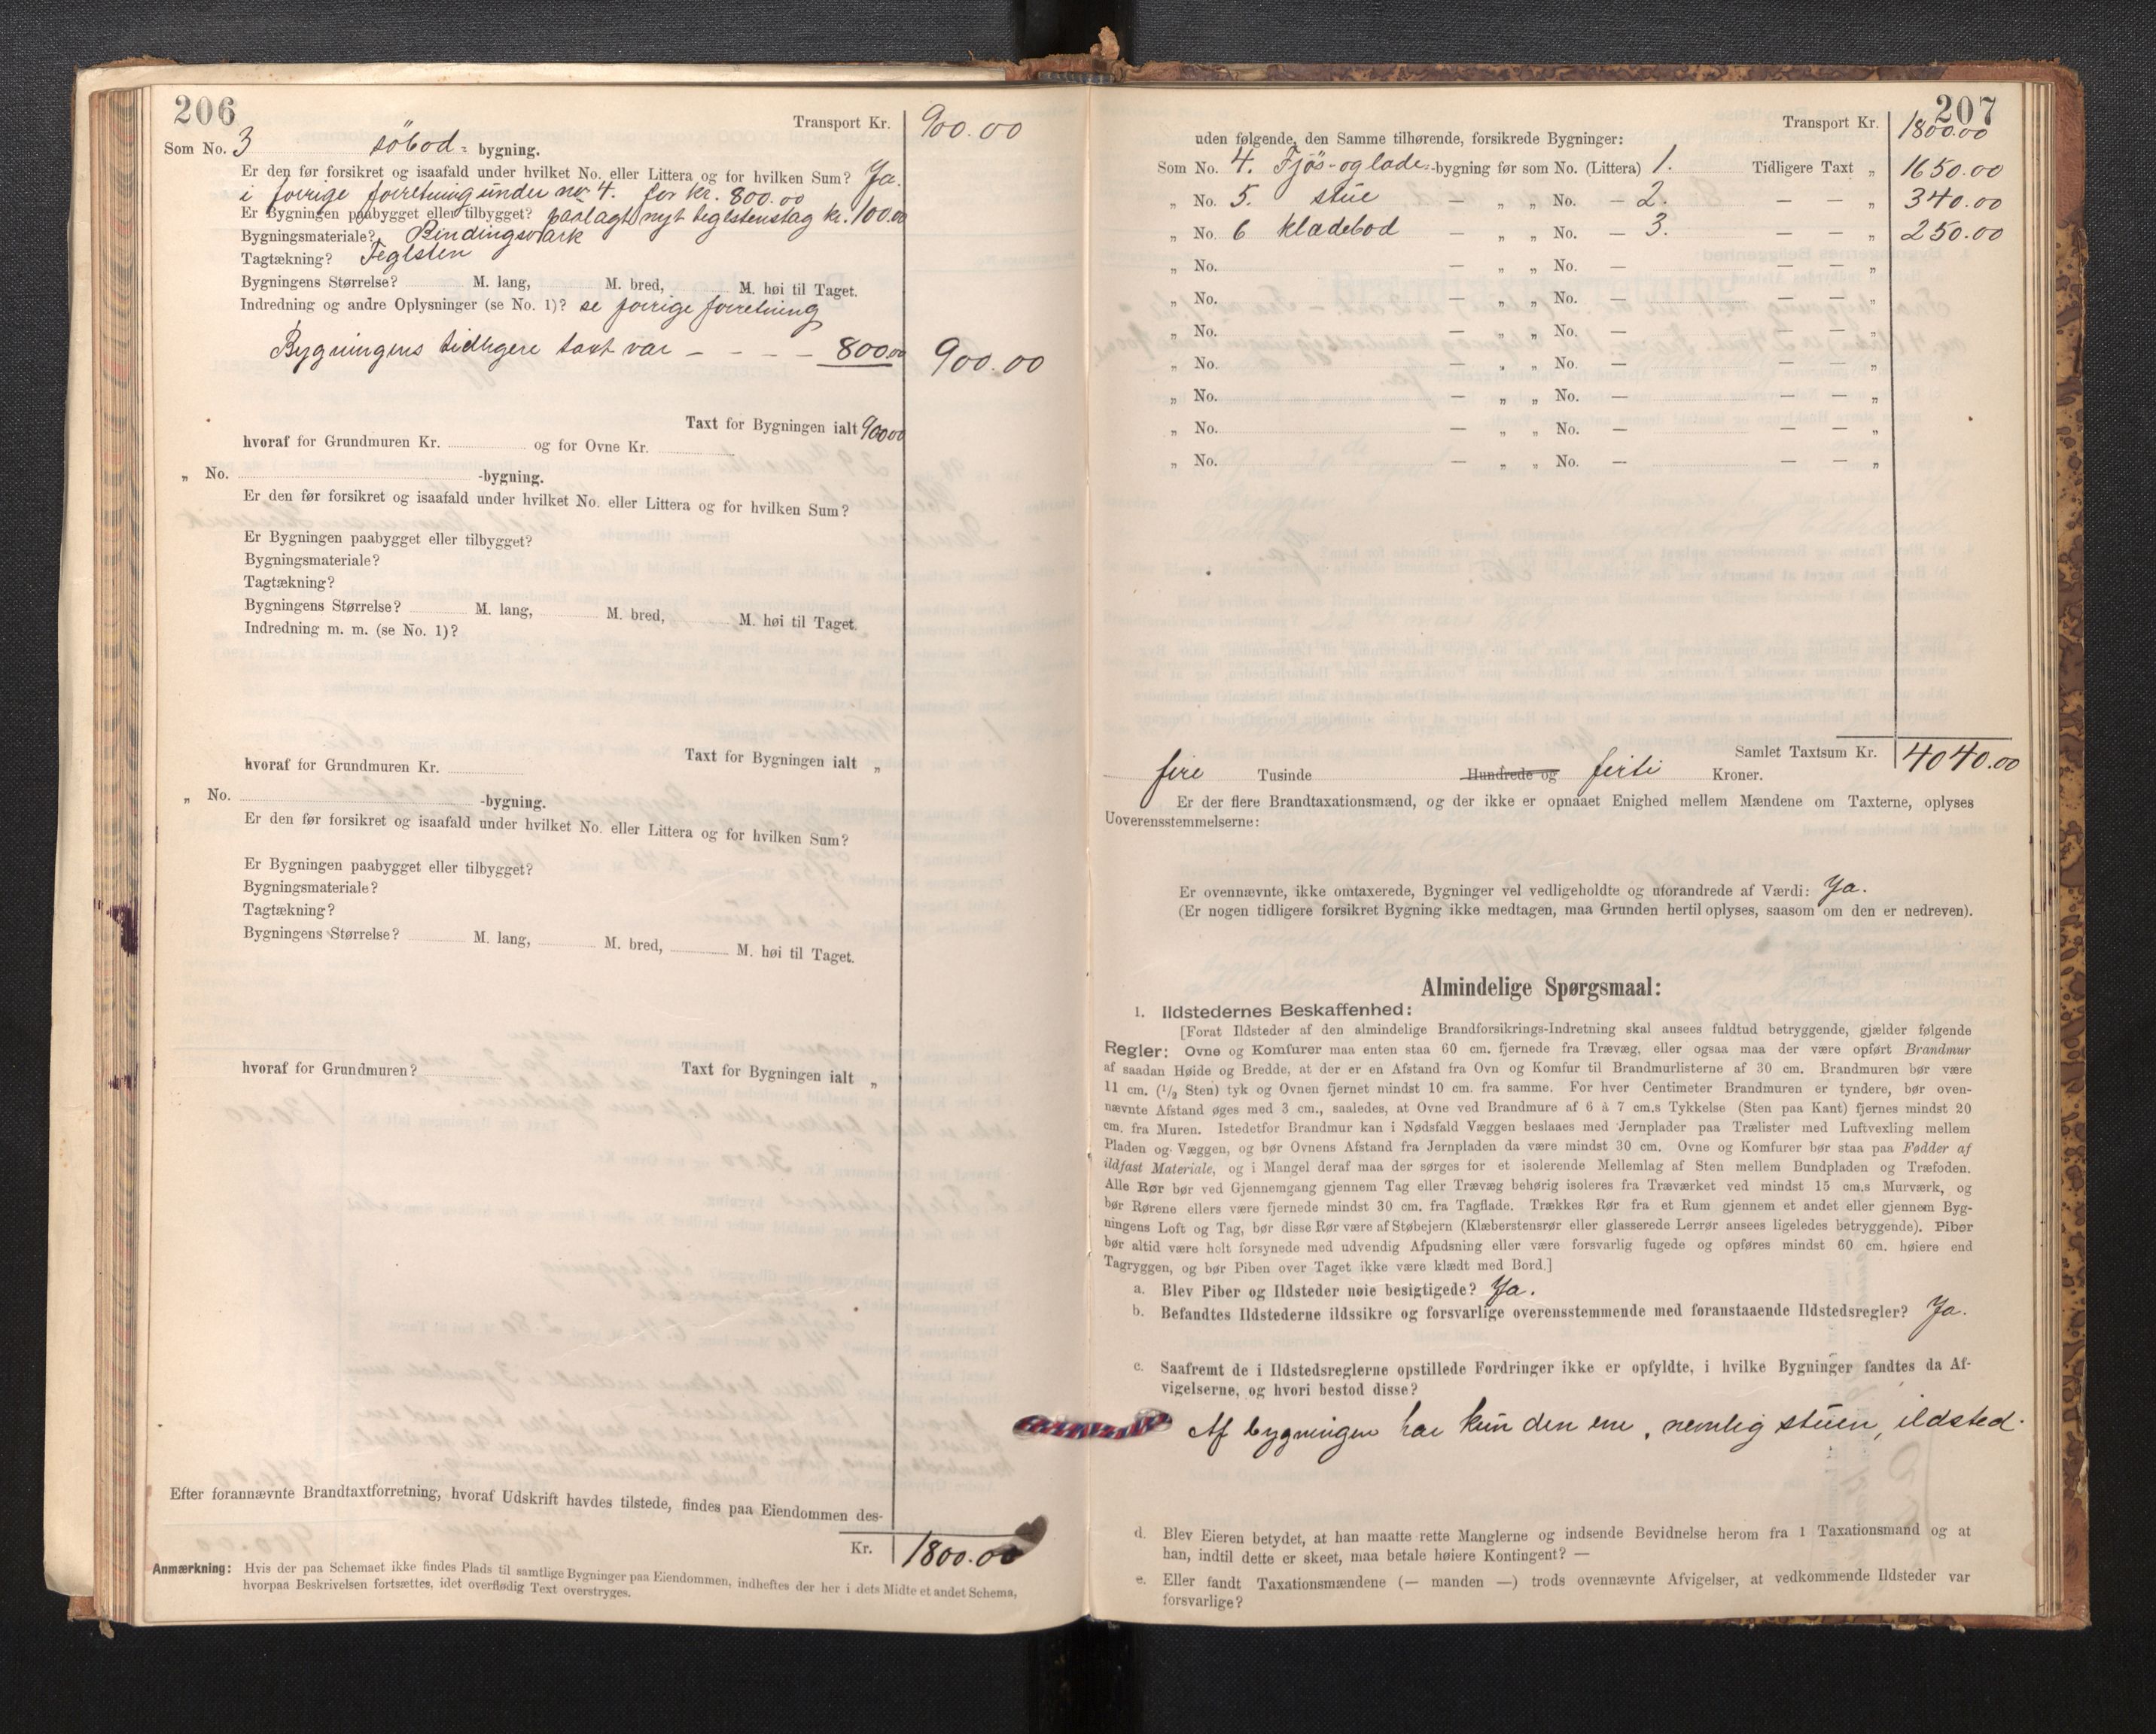 206
Transport Kr. 900.00
Som No. 3 söbod - bygning.
Er den før forsikret og isaafald under hvilket No. eller Littera og for hvilken Sum? Ja.
i forrige forretning under no 4. for kr. 800.00
Er Bygningen paabygget eller tilbygget? paalagt nyt teglstenstag kr. 100.00
Bygningsmateriale? Bindingsværk
Tagtækning? Teglsten
Bygningens Størrelse? M. lang, M. bred, M. høi til Taget.
Indredning og andre Oplysninger (se No. 1)? se forrige forretning
Bygningens tidligere taxt var - - - - 800.00 900.00
Taxt for Bygningen ialt 900.00
hvoraf for Grundmuren Kr. og for Ovne Kr.
„ No. -bygning.
Er den før forsikret og isaafald under hvilket No. eller Littera og for hvilken Sum?
Er Bygningen paabygget eller tilbygget?
Bygningsmateriale?
Tagtækning?
Bygningens Størrelse? M. lang, M. bred, M. høi til Taget.
Indredning m. m. (se No. 1)?
Taxt for Bygningen ialt „
hvoraf for Grundmuren Kr.
„ No. -bygning.
Er den før forsikret og isaafald under hvilket No. eller Littera og for hvilken Sum?
Er Bygningen paabygget eller tilbygget?
Bygningsmateriale?
Tagtækning?
Bygningens Størrelse? M. lang, M. bred, M. høi til Taget.
hvoraf for Grundmuren? Taxt for Bygningen ialt „
Efter forannævnte Brandtaxtforretning, hvoraf Udskrift havdes tilstede, findes paa Eiendommen des-
Kr. 1800.00
Anmærkning: Hvis der paa Schemaet ikke findes Plads til samtlige Bygninger paa Eiendommen, indheftes der her i dets Midte et andet Schema,
hvorpaa Beskrivelsen fortsættes, idet overflødig Text overstryges.
207
Transport Kr. 1800.00
uden følgende, den Samme tilhørende, forsikrede Bygninger:
Som No. 4. Fjös-og lade -bygning før som No. (Littera) 1. Tidligere Taxt „ 1650.00
„ No. 5. stue — „ „ No. — 2. — — „ 340.00
„ No. 6 klædebod — „ „ No. — 3. — — „ 250.00
„ No. — „ „ No. — — — „
„ No. — „ „ No. — — — „
„ No. — „ „ No. — — — „
„ No. — „ „ No. — — — „
„ No. — „ „ No. — — — „
„ No. — „ „ No. — — — „
„ No. — „ „ No. — — — „
Samlet Taxtsum Kr. 4040.00
fire Tusinde Hundrede og firti Kroner.
Er der flere Brandtaxationsmænd, og der ikke er opnaaet Enighed mellem Mændene om Taxterne, oplyses
Uoverensstemmelserne:
Er ovennævnte, ikke omtaxerede, Bygninger vel vedligeholdte og uforandrede af Værdi: Ja.
(Er nogen tidligere forsikret Bygning ikke medtagen, maa Grunden hertil oplyses, saasom om den er nedreven).
Almindelige Spørgsmaal:
1. Ildstedernes Beskaffenhed:
[Forat Ildsteder af den almindelige Brandforsikrings-Indretning skal ansees fuldtud betryggende, gjælder følgende
Regler: Ovne og Komfurer maa enten staa 60 cm. fjernede fra Trævæg, eller ogsaa maa der være opført Brandmur
af saadan Høide og Bredde, at der er en Afstand fra Ovn og Komfur til Brandmurlisterne af 30 cm. Brandmuren bør være
11 cm. (1/2 Sten) tyk og Ovnen fjernet mindst 10 cm. fra samme. For hver Centimeter Brandmuren er tyndere, bør oven-
nævnte Afstand øges med 3 cm., saaledes, at Ovne ved Brandmure af 6 à 7 cm.s Tykkelse (Sten paa Kant) fjernes mindst 20
cm. fra Muren. Istedetfor Brandmur kan i Nødsfald Væggen beslaaes med Jernplader paa Trælister med Luftvexling mellem
Pladen og Væggen, og bør Ovnens Afstand fra Jernpladen da være mindst 30 cm. Ovne og Komfurer bør staa paa Fødder af
ildfast Materiale, og i Mangel deraf maa der sørges for et isolerende Mellemlag af Sten mellem Bundpladen og Træfoden.
Alle Rør bør ved Gjennemgang gjennem Tag eller Trævæg behørig isoleres fra Træværket ved mindst 15 cm.s Murværk, og
bør Rørene ellers være fjernede mindst 30 cm. fra Tagflade. Trækkes Rør fra et Rum gjennem et andet eller gjennem Byg-
ningens Loft og Tag, bør disse Rør være af Støbejern (Klæberstensrør eller glasserede Lerrør ansees ligeledes betryggende). Piber
bør altid være helt forsynede med udvendig Afpudsning eller være forsvarlig fugede og opføres mindst 60 cm. høiere end
Tagryggen, og bør Piben over Taget ikke være klædt med Bord.]
a. Blev Piber og Ildsteder nøie besigtigede? Ja.
b. Befandtes Ildstederne ildssikre og forsvarlige overensstemmende med foranstaaende Ildstedsregler? Ja.
c. Saafremt de i Ildstedsreglerne opstillede Fordringer ikke er opfyldte, i hvilke Bygninger fandtes da Af-
vigelserne, og hvori bestod disse?
Af bygningen har kun den ene, nemlig stuen, ildsted.
d. Blev Eieren betydet, at han maatte rette Manglerne og indsende Bevidnelse herom fra 1 Taxationsmand og at
han, indtil dette er skeet, maa betale høiere Kontingent? —
e. Eller fandt Taxationsmændene (— manden —) trods ovennævnte Afvigelser, at vedkommende Ildsteder var
forsvarlige?